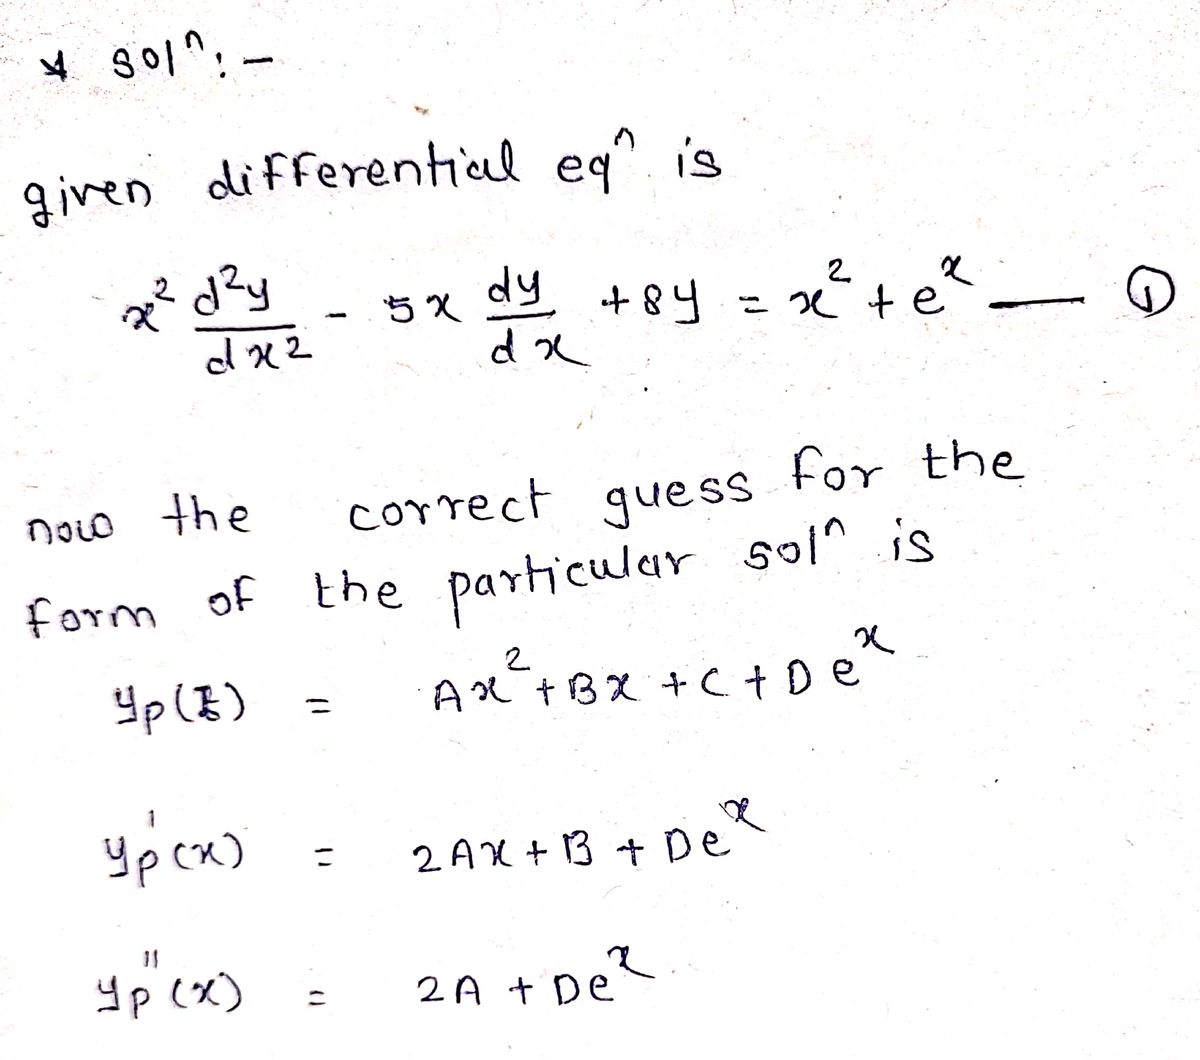 * solⁿ:-
given differential eqⁿ is
x² d²y/dx² - 5x dy/dx + 8y = x² + eˣ — ①
now the correct guess for the
form of the particular solⁿ is
yp( ) = Ax² + Bx + C + Deˣ
yp'(x) = 2Ax + B + Deˣ
yp''(x) = 2A + Deˣ